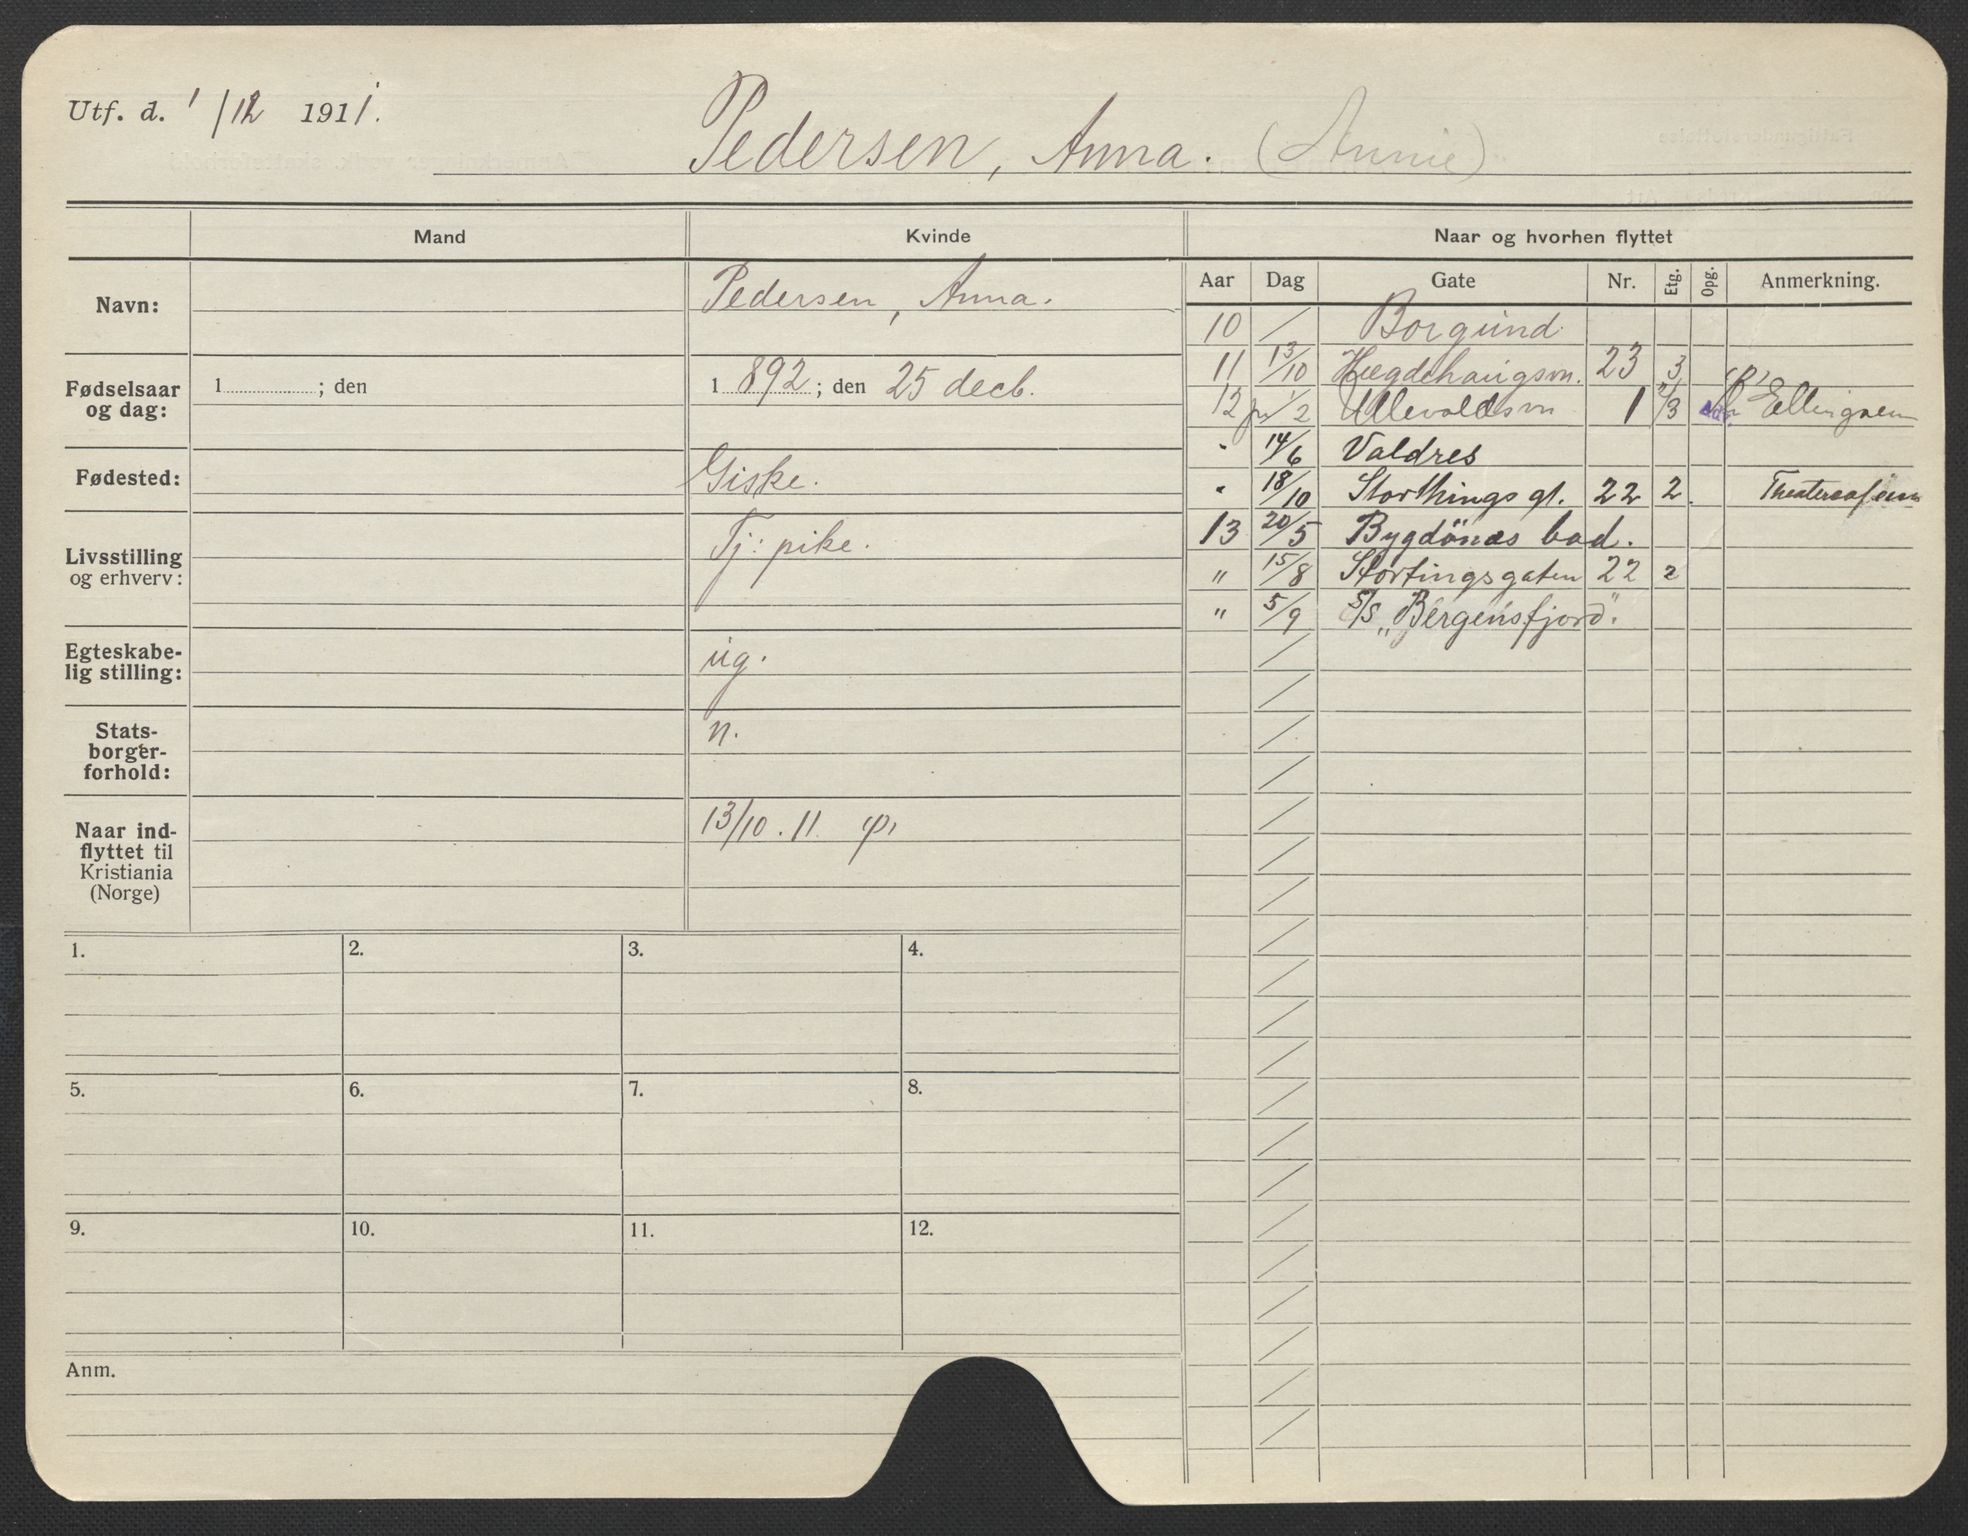 Utf. d. 1/12 1911.
Pedersen, Anna. (Annie)
Mand
Kvinde
Naar og hvorhen flyttet
Navn:
Pedersen, Anna.
Fødselsaar og dag:
1 ; den
1892; den 25 decb.
Fødested:
Giske.
Livsstilling og erhverv:
Tj: pike.
Egteskabe-
lig stilling:
ug.
Stats-
borger-
forhold:
n.
Naar ind-
flyttet til
Kristiania
(Norge)
13/10. 11.
1. 2. 3. 4.
5. 6. 7. 8.
9. 10. 11. 12.
Anm.
Aar Dag Gate Nr. Etg. Opg. Anmerkning.
10 / Borgund
11 13/10 Hægdehaugsvn. 23 3
12 1/2 Ullevoldsvn 1 3
" 14/6 Valdres
" 18/10 Storthings gt. 22 2. Theatercafeen
13 20/5 Bygdönæs bad.
" 15/8 Stortingsgaten 22 2
" 5/9 S/S „Bergensfjord".